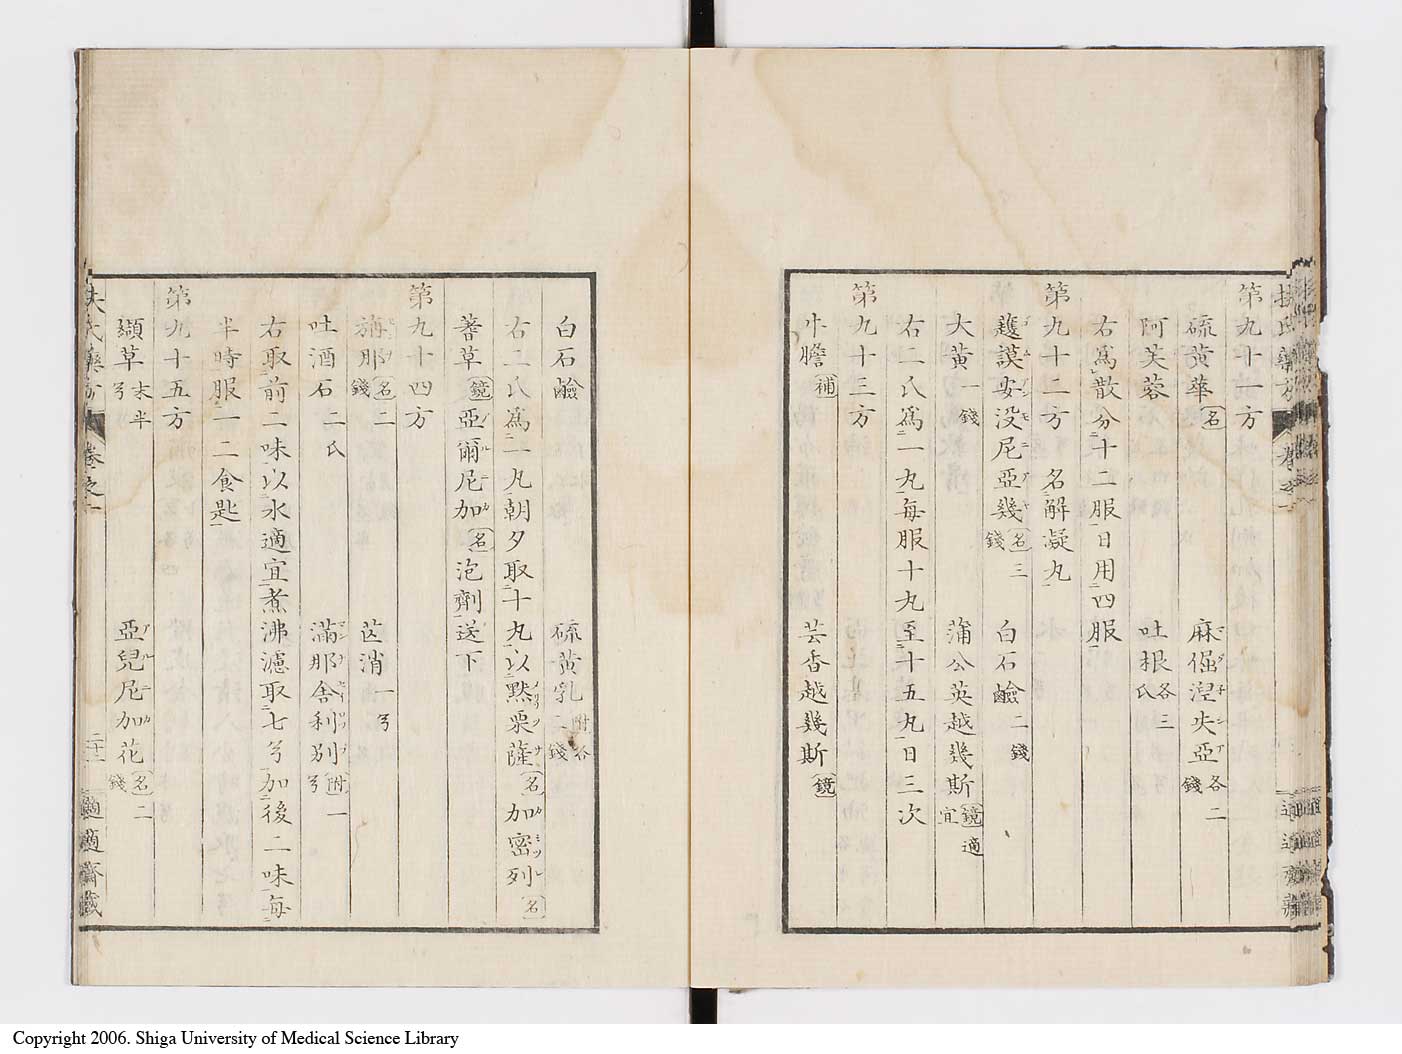 第九十一方
硫黄華名 麻倔涅矢亞各二錢
阿芙蓉 吐根各三氏
右爲散分十二服日用四服
第九十二方 名解凝丸
護謨安没尼亞幾名三錢 白石鹼二錢
大黄一錢 蒲公英越幾斯鏡適宜
右二氏爲一丸毎服十丸至十五丸日三次
第九十三方
牛膽補 芸香越幾斯鏡
白石鹼 硫黄乳附各二錢
右二氏爲一丸朝夕取十丸以默栗薩名加密列名
蓍草鏡亞爾尼加名泡劑送下
第九十四方
旃那名二錢 芒消一ヲ
吐酒石二氏 滿那舍利別附一ヲ
右取前二味以水適宜煮沸濾取七ヲ加後二味毎
半時服一二食匙
第九十五方
纈草末半ヲ 亞兒尼加花名二錢
扶氏藥方 卷之一 二十三 適適齋藏
Copyright 2006. Shiga University of Medical Science Library